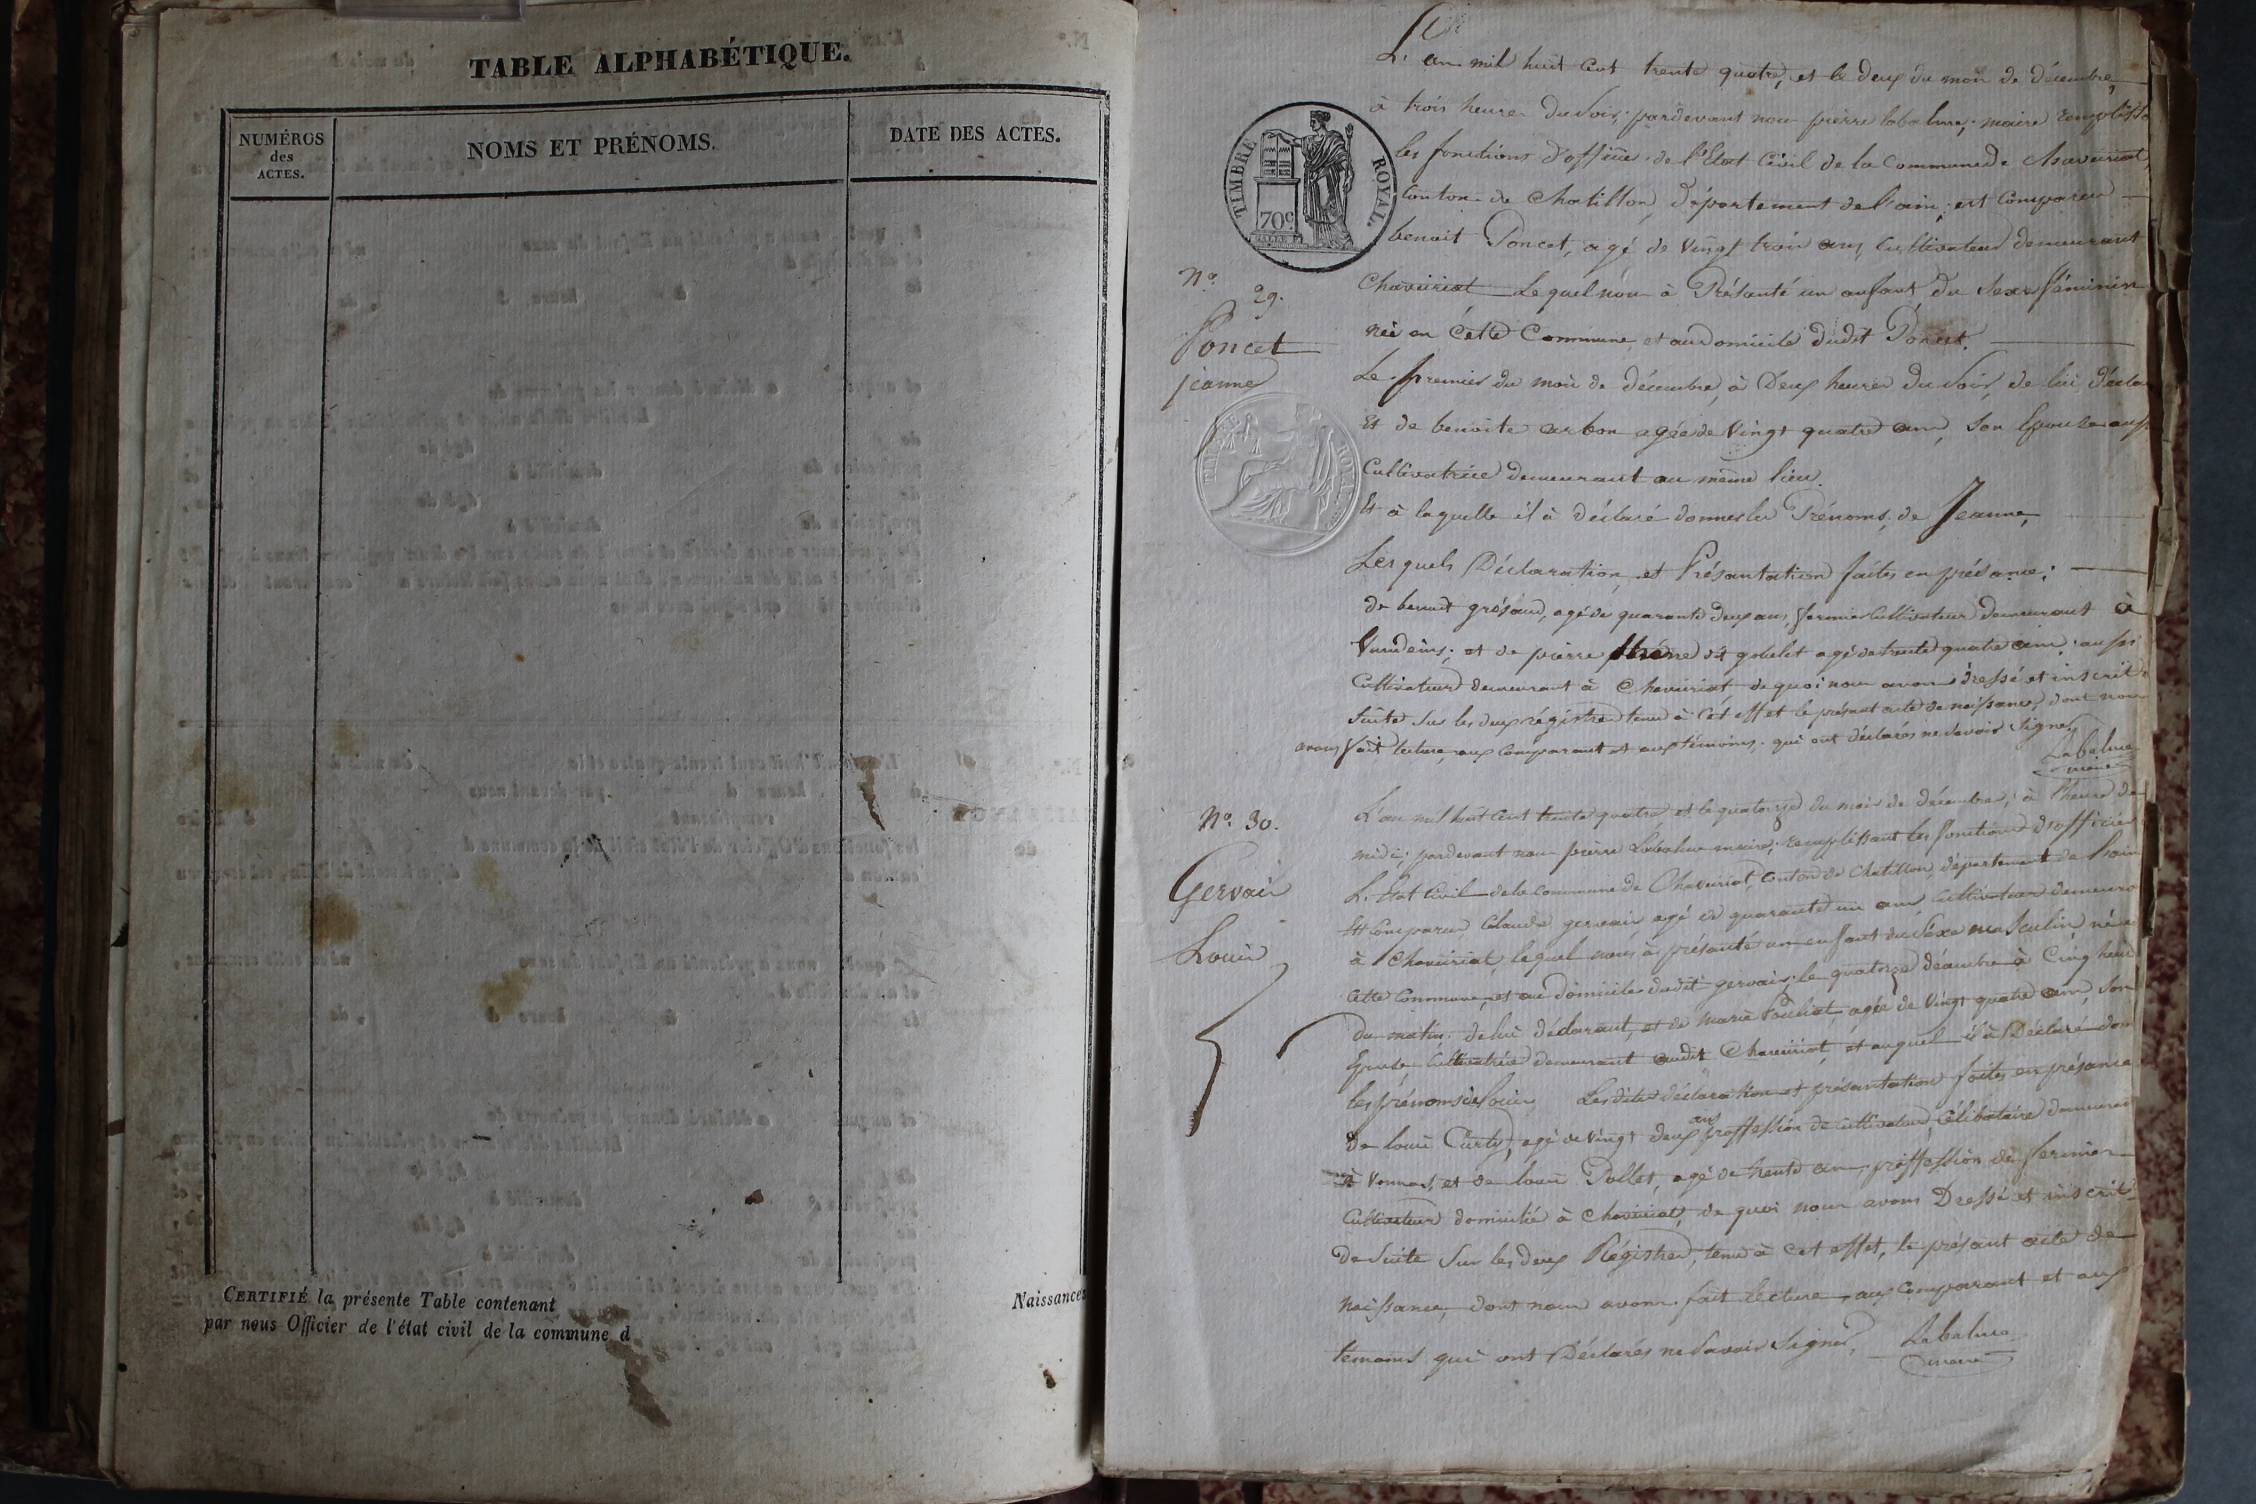 TABLE ALPHABÉTIQUE.
NUMÉROS
des
ACTES.
NOMS ET PRÉNOMS.
DATE DES ACTES.
CERTIFIÉ la présente Table contenant
Naissances
par nous Officier de l'état civil de la commune d
L'an mil huit cent trente quatre, et le deux du mois de décembre,
à trois heures du soir, pardevant nous pierre labalme, maire
TIMBRE ROYAL.
70c
les fonctions d'officier de l'Etat Civil de la Commune de Chaveiriat,
Conton de Chatillon, département de l'ain, est Comparu
benoit Poncet, agé de vingt trois ans, Cultivateur demeurant
No. 29.
Poncet
jeanne
Chaveiriat Lequel nous à Présanté un anfant du Sexe féminin
née en Cette Commune, et au domicile dudit Poncet.
Le premier du mois de décembre, à Deux heures du Soir, de lui
Et de benoite agée de Vingt quatre ans, Son Epouse
TIMBRE ROYAL
Cultivatrice demeurant au même lieu.
Et à laquelle il à déclaré donner les Prénoms, de Jeanne,
Lesquels Déclaration, et Présantation faites en présance;
de benoit agé de quarante deux ans, fermier Cultivateur demeurant à
et de pierre dit gobelet agé de trente quatre ans, aussi
Cultivateur demeurant à Chaveiriat de quoi nous avons dressé et inscrit
Suite Sur les deux régistres tenus à Cet effet le présent acte de naissance, dont nous
avons fait lecture, aux Comparant et aux témoins, qui ont déclarés ne Savoir Signer,
Labalme
maire
No. 30.
Gervais
Louis
L'an mil huit Cent trente quatre et le quatorze du mois de décembre, à l'heure de
midi, pardevant nous pierre Labalme maire, remplissant les fonctions d'officier
L'Etat Civil de la Commune de Chaveiriat, Conton de Chatillon, département de l'ain
Est Comparu, Claude gervais agé de quarante un ans, Cultivateur
à Chaveiriat, lequel nous à présanté un enfant du Sexe masculin né
Cette Commune, et au Domicile dudit gervais, le quatorze décembre à Cinq heures
Du matin. de lui déclarant, et de Marie agée de Vingt quatre ans, Son
Epouse, Cultivatrice demeurant audit Chaveiriat, et auquel il à Déclaré
les prénoms de Louis Lesdites déclaration et présantation faites en présance
De louis Curty, agé de Vingt deux ans proffession de Cultivateur, Célibataire
à Vonnas, et de louis Pollet, agé de trente ans, proffession de fermier
Cultivateur domicilié à Chaveiriat, de quoi nous avons Dressé et inscrit
De Suite Sur les deux Régistres, tenus à Cet effet, le présant acte de
naissance, dont nous avons fait lecture, aux Comparant et aux
temoins qui ont Déclarés ne Savoir Signer,
Labalme
maire